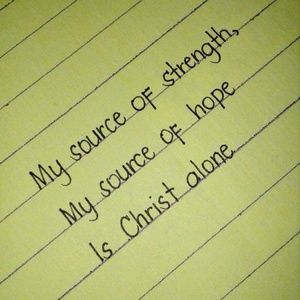 My source of strength,
My source of hope
Is Christ alone.